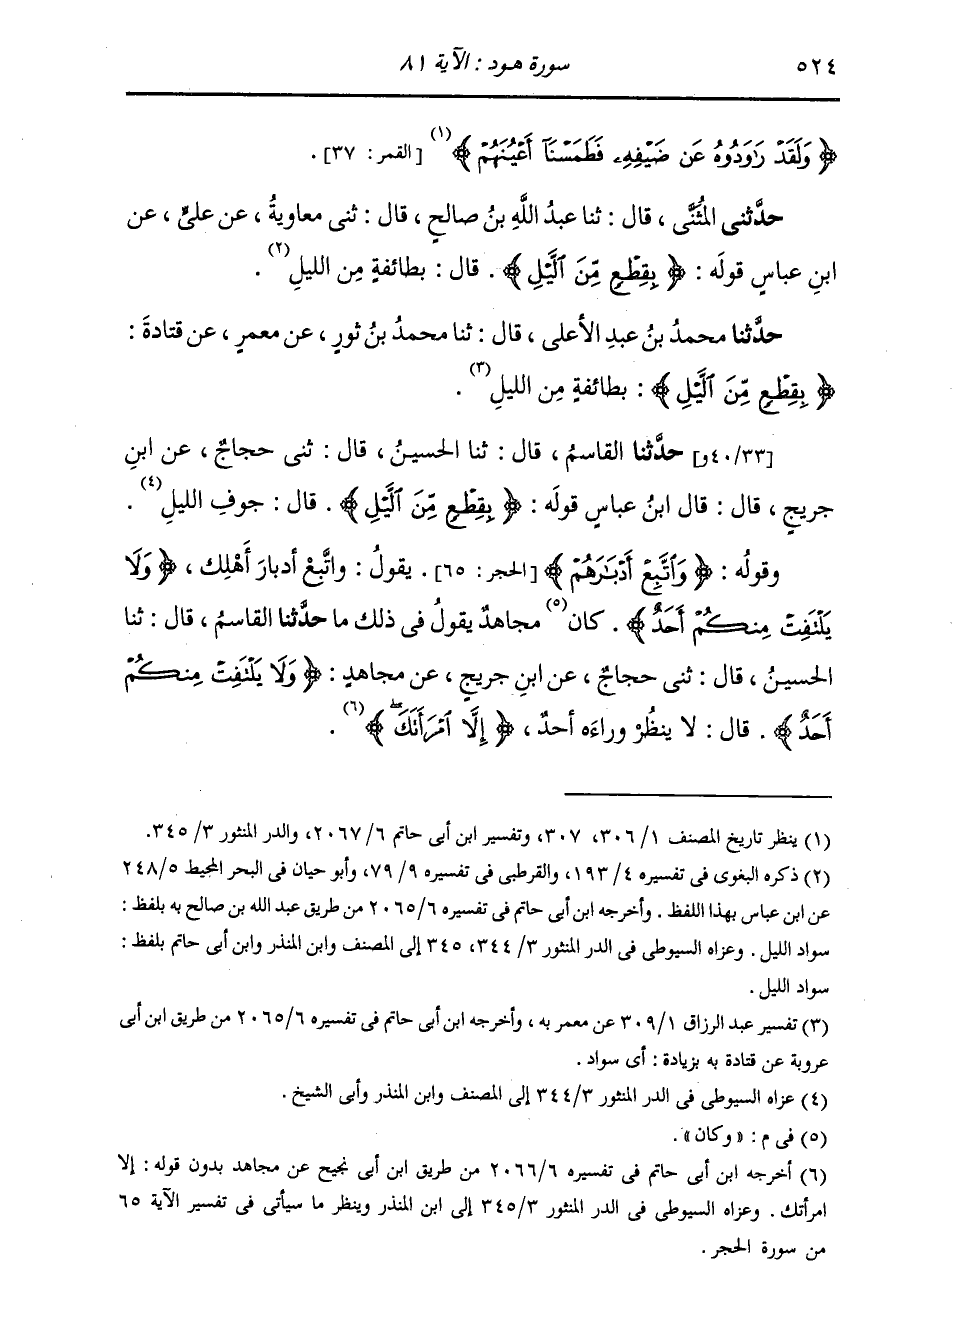 ٥٢٤ سورة هود : الآية ٨١
﴿ وَلَقَدْ رَٰوَدُوهُ عَن ضَيْفِهِۦ فَطَمَسْنَآ أَعْيُنَهُمْ ﴾(١) [القمر: ٣٧] .
حدَّثنى المُثنَّى ، قال : ثنا عبدُ اللَّهِ بنُ صالحٍ ، قال : ثنى معاويةُ ، عن علىٍّ ، عن
ابنِ عباسٍ قولَه : ﴿ بِقِطْعٍ مِّنَ ٱلَّيْلِ ﴾ . قال : بطائفةٍ مِن الليلِ(٢) .
حدَّثنا محمدُ بنُ عبدِ الأعلى ، قال : ثنا محمدُ بنُ ثورٍ ، عن معمرٍ ، عن قتادةَ :
﴿ بِقِطْعٍ مِّنَ ٱلَّيْلِ ﴾ : بطائفةٍ مِن الليلِ(٣) .
[٤٠/٣٣و] حدَّثنا القاسمُ ، قال : ثنا الحسينُ ، قال : ثنى حجاجٌ ، عن ابنِ
جريجٍ ، قال : قال ابنُ عباسٍ قولَه : ﴿ بِقِطْعٍ مِّنَ ٱلَّيْلِ ﴾ . قال : جوفِ الليلِ(٤) .
وقولُه : ﴿ وَٱتَّبِعْ أَدْبَـٰرَهُمْ ﴾ [الحجر: ٦٥] . يقولُ : واتَّبِعْ أدبارَ أَهْلِك ، ﴿ وَلَا
يَلْتَفِتْ مِنكُمْ أَحَدٌ ﴾ . كان(٥) مجاهدٌ يقولُ فى ذلك ما حدَّثنا القاسمُ ، قال : ثنا
الحسينُ ، قال : ثنى حجاجٌ ، عن ابنِ جريجٍ ، عن مجاهدٍ : ﴿ وَلَا يَلْتَفِتْ مِنكُمْ
أَحَدٌ ﴾ . قال : لا ينظُرْ وراءَه أحدٌ ، ﴿ إِلَّا ٱمْرَأَتَكَ ﴾(٦) .
(١) ينظر تاريخ المصنف ٣٠٦/١، ٣٠٧، وتفسير ابن أبى حاتم ٢٠٦٧/٦، والدر المنثور ٣٤٥/٣.
(٢) ذكره البغوى فى تفسيره ١٩٣/٤، والقرطبى فى تفسيره ٧٩/٩، وأبو حيان فى البحر المحيط ٢٤٨/٥
عن ابن عباس بهذا اللفظ . وأخرجه ابن أبى حاتم فى تفسيره ٢٠٦٥/٦ من طريق عبد الله بن صالح به بلفظ :
سواد الليل . وعزاه السيوطى فى الدر المنثور ٣٤٤/٣، ٣٤٥ إلى المصنف وابن المنذر وابن أبى حاتم بلفظ :
سواد الليل .
(٣) تفسير عبد الرزاق ٣٠٩/١ عن معمر به ، وأخرجه ابن أبى حاتم فى تفسيره ٢٠٦٥/٦ من طريق ابن أبى
عروبة عن قتادة به بزيادة : أى سواد .
(٤) عزاه السيوطى فى الدر المنثور ٣٤٤/٣ إلى المصنف وابن المنذر وأبى الشيخ .
(٥) فى م : « وكان » .
(٦) أخرجه ابن أبى حاتم فى تفسيره ٢٠٦٦/٦ من طريق ابن أبى نجيح عن مجاهد بدون قوله : إلا
امرأتك . وعزاه السيوطى فى الدر المنثور ٣٤٥/٣ إلى ابن المنذر وينظر ما سيأتى فى تفسير الآية ٦٥
من سورة الحجر .